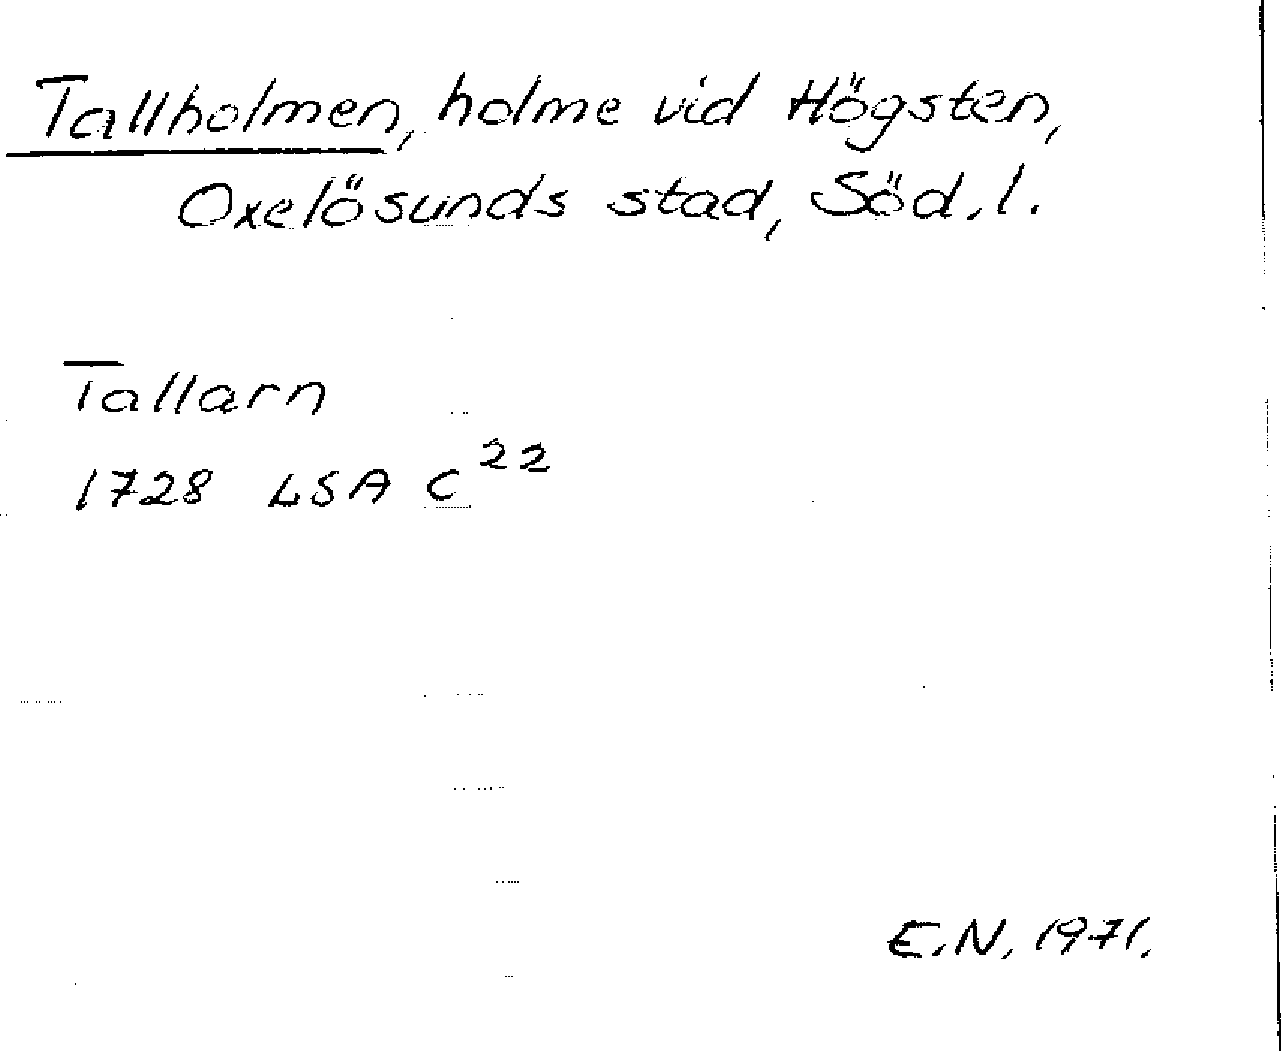 Tallholmen, holme vid Högsten,
Oxelösunds stad, Söd. l.
Tallarn
1728 LSA C²²
E.N. 1971.